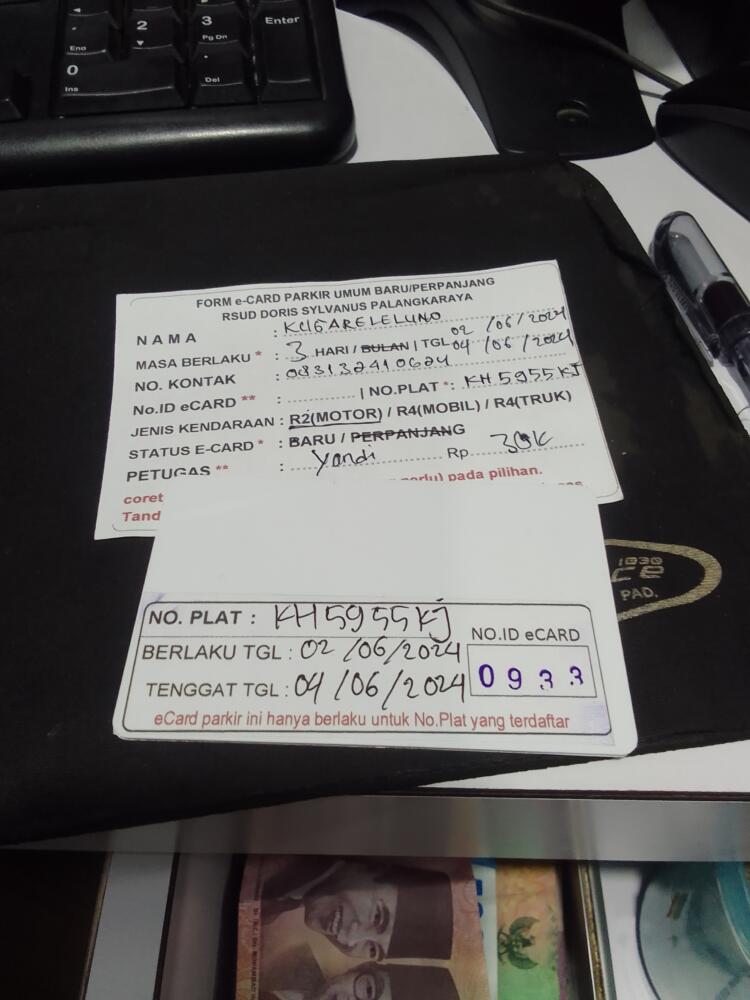 End
2
3
Pg Dn
Enter
0
Ins
.
Del
FORM e-CARD PARKIR UMUM BARU/PERPANJANG
RSUD DORIS SYLVANUS PALANGKARAYA
NAMA :
MASA BERLAKU * : 3 HARI / BULAN | TGL 02/06/2024
04/06/2024
NO. KONTAK : 083132410624
No.ID eCARD ** : ............ | NO.PLAT *: KH 5955 KJ
JENIS KENDARAAN : R2(MOTOR) / R4(MOBIL) / R4(TRUK)
STATUS E-CARD * : BARU / PERPANJANG
PETUGAS ** : Yandi Rp 30K
coret perlu) pada pilihan.
Tand
NO. PLAT : KH 5955 KJ
BERLAKU TGL : 02/06/2024
TENGGAT TGL : 04/06/2024
NO.ID eCARD
0933
eCard parkir ini hanya berlaku untuk No.Plat yang terdaftar
PAD.